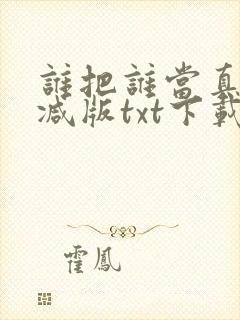 誰把誰當真
減版txt下載
霍鳳